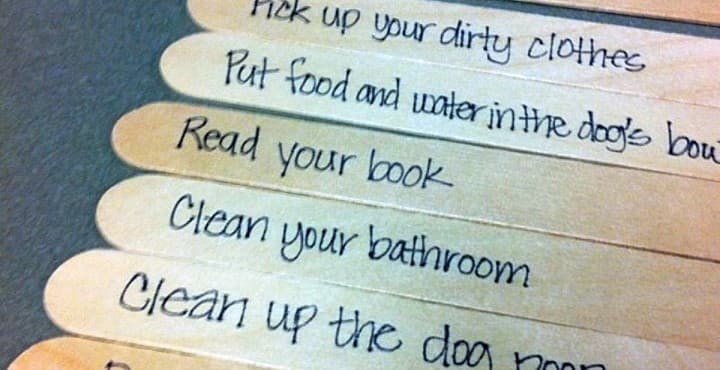 Pick up your dirty clothes
Put food and water in the dog's
Read your book
Clean your bathroom
Clean up the dog